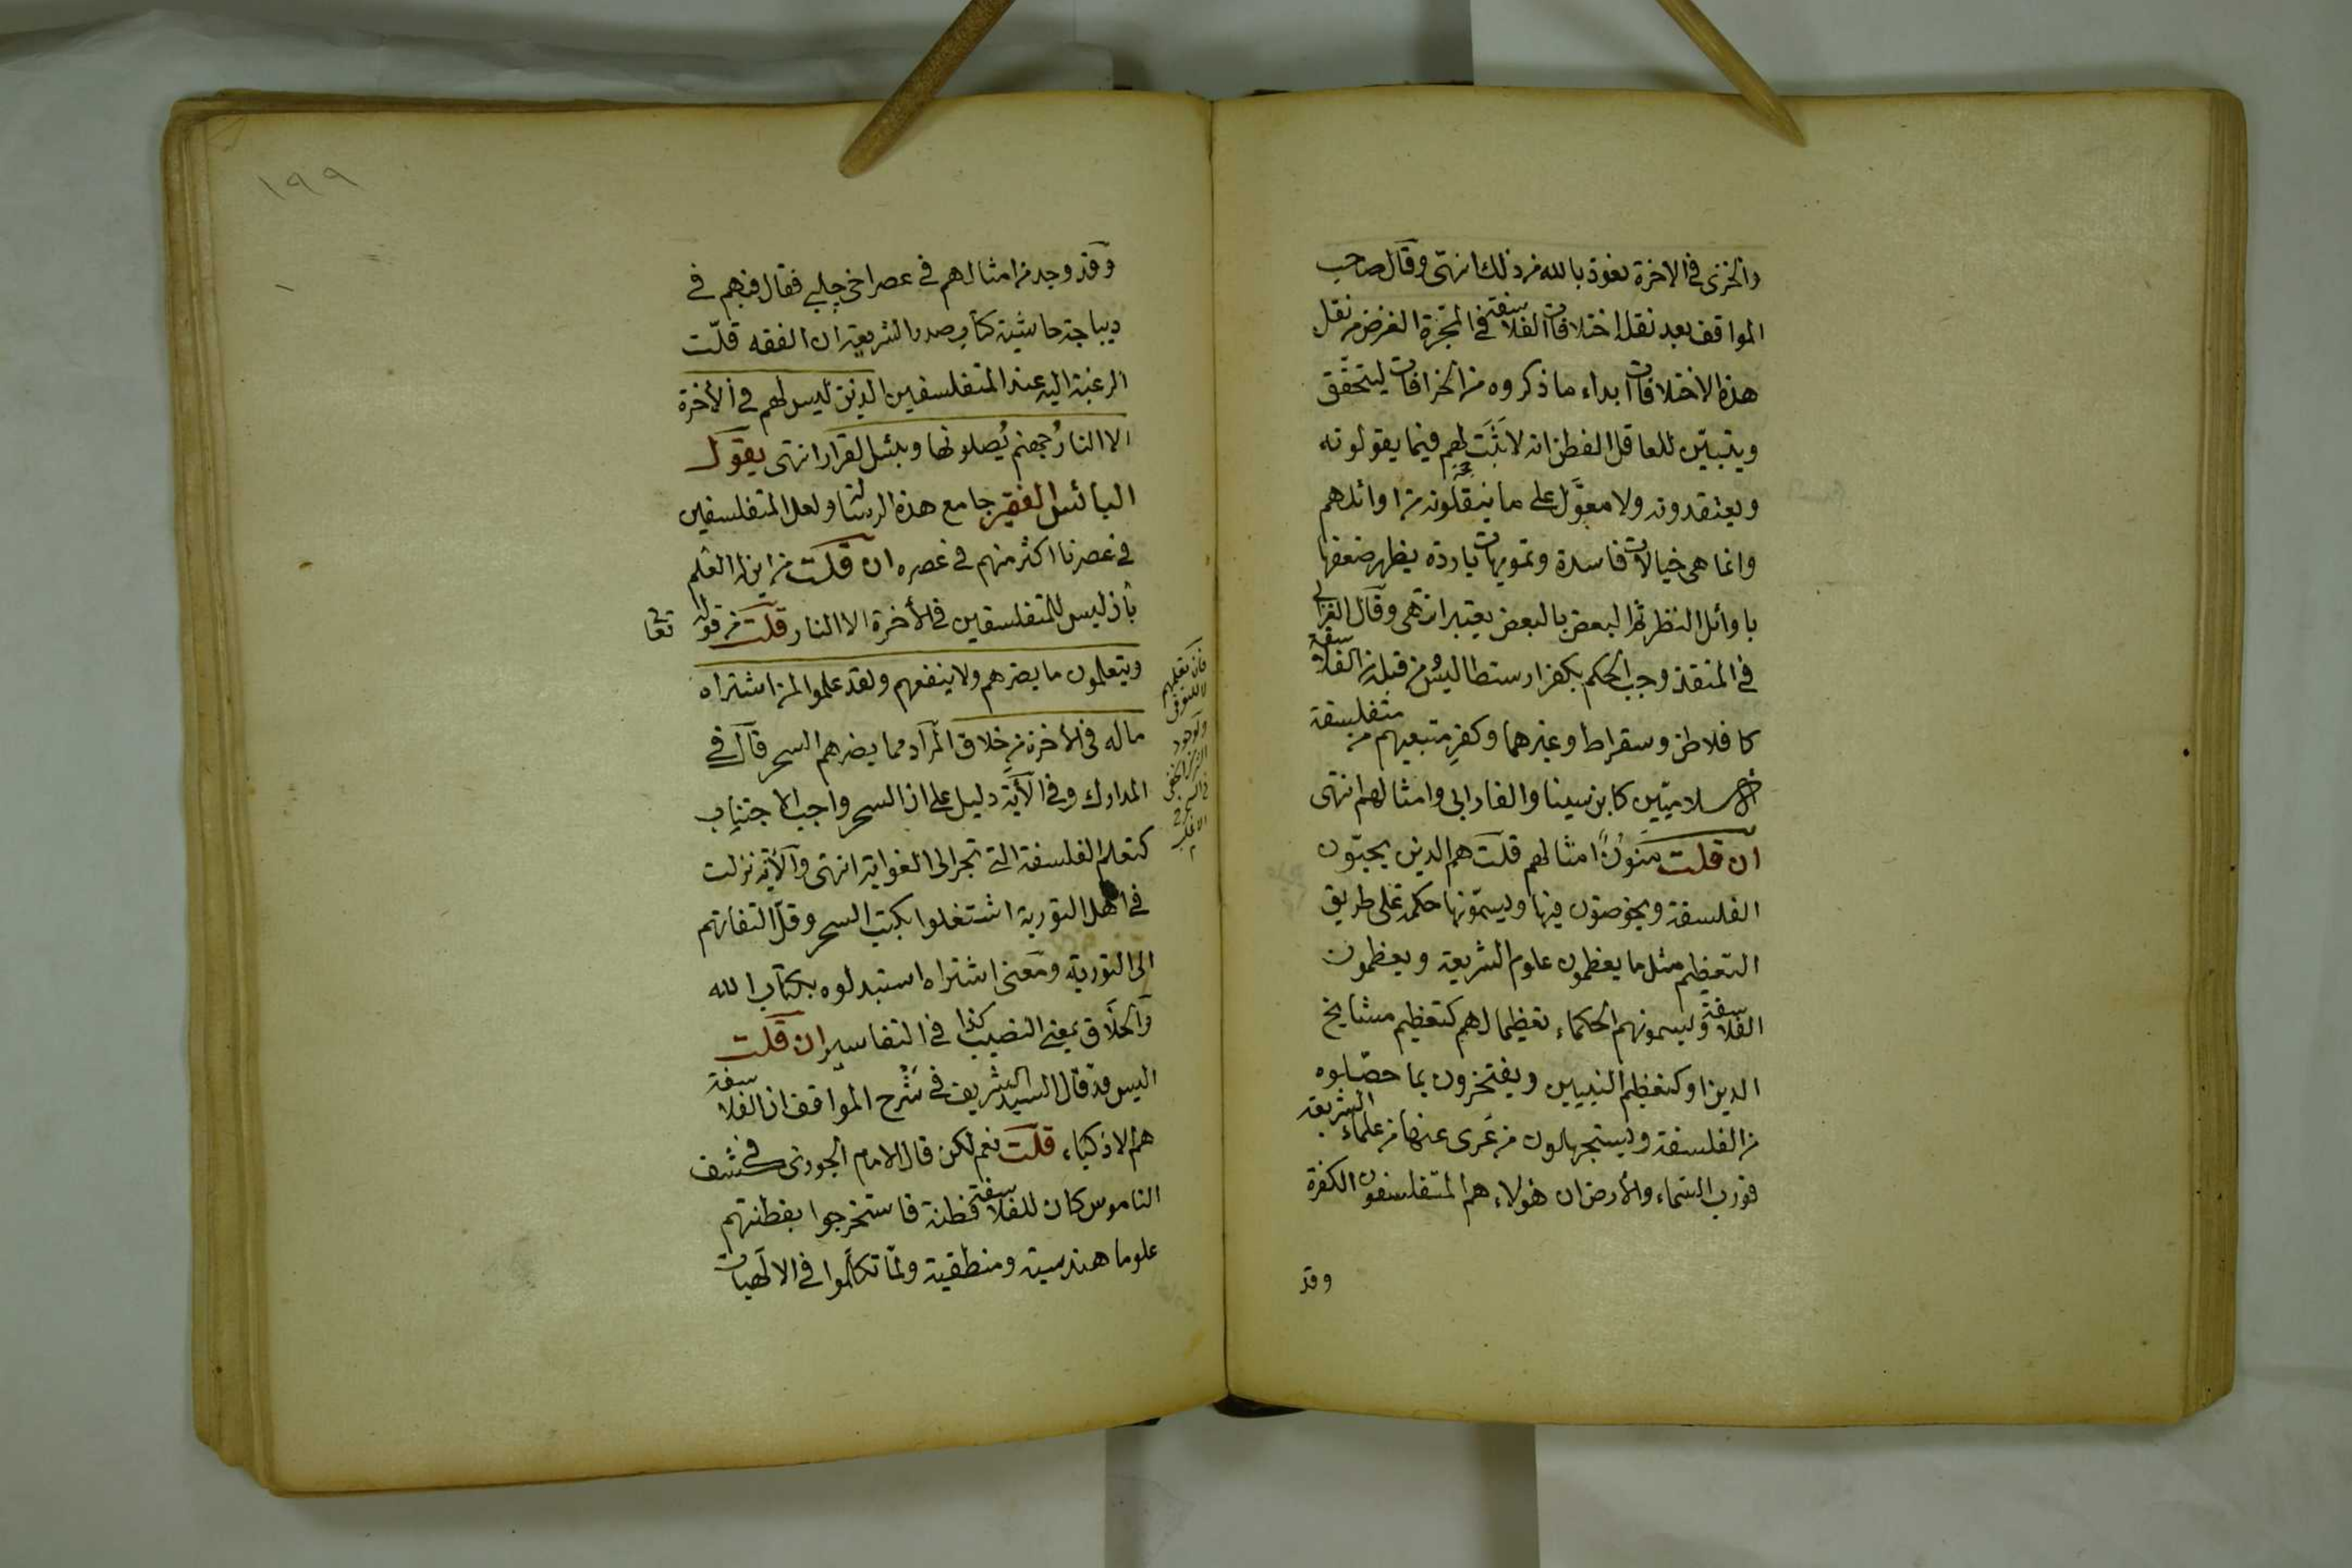 والخزى في الاخرة نعوذ بالله من ذلك انتهى وقال صاحب
المواقف بعد نقل اختلافات الفلاسفة في المجرة الغرض من نقل
هذه الاختلافات ابداء ما ذكروه من الخرافات ليتحقق
ويتبيّن للعاقل الفطن انه لا ثَبَت لهم فيما يقولونه
ويعتقدونه ولا معوَّل على ما ينقلونه من اوائلهم
وانما هى خيالات فاسدة وتمويهات باردة يظهر ضعفها
باوائل النظر ثم البعض بالبعض يعتبر انتهى وقال الغزالى
في المنقذ وجب الحكم بكفر ارسطاليس ومن قبله من الفلاسفة
كافلاطن وسقراط وغيرهما وكفرِ متبعيهم من متفلسفة
الاسلاميّين كابن سينا والفارابى وامثالهم انتهى
ان قلت مَنون امثالهم قلت هم الذين يحبّون
الفلسفة ويخوضون فيها ويسمّونها حكمة على طريق
التعظيم مثل ما يعظمون علوم الشريعة ويعظمون
الفلاسفة ويسمونهم الحكماء تعظيما لهم كتعظيم مشايخ
الدين او كتعظيم النبيين ويفتخرون بما حصّلوه
من الفلسفة ويستجهلون من عَرى عنها من علماء الشريعة
فورب السماء والأرض ان هؤلاء هم المتفلسفون الكفرة
وقد
١٩٩
وقد وجد من امثالهم في عصر اخى جلبي فقال فيهم في
ديباجة حاشية كتاب صدر الشريعة ان الفقه قلّت
الرغبة اليه عند المتفلسفين الذين ليس لهم في الأخرة
الا النارُ جهنم يُصلونها وبئس القرار انتهى يقول
البائس الفقير جامع هذه الرسالة ولعل المتفلسفين
في عصرنا اكثر منهم في عصره ان قلت من اين له العلم
بان ليس للمتفلسفين في الأخرة الا النار قلت من قوله تعالى
ويتعلمون ما يضرهم ولا ينفعهم ولقد علموا لمن اشتراه
ماله في الأخرة من خلاق المراد مما يضرهم السحر قال في
المدارك وفي الأية دليل على ان السحر واجب الاجتناب
كتعلم الفلسفة التي تجر الى الغواية انتهى والأية نزلت
في اهل التورية اشتغلوا بكتب السحر وقلّ التفاتهم
الى التورية ومعنى اشتراه استبدلوه بكتاب الله
والخلاق بمعنى النصيب كذا في التفاسير ان قلت
اليس قد قال السيد الشريف في شرح المواقف ان الفلاسفة
هم الاذكياء قلت نعم لكن قال الامام الجوزى في كشف
الناموس كان للفلاسفة فطنة فاستخرجوا بفطنتهم
علوما هندسية ومنطقية ولمّا تكلّموا في الالهيات
فان تعلمهم
للتوقى